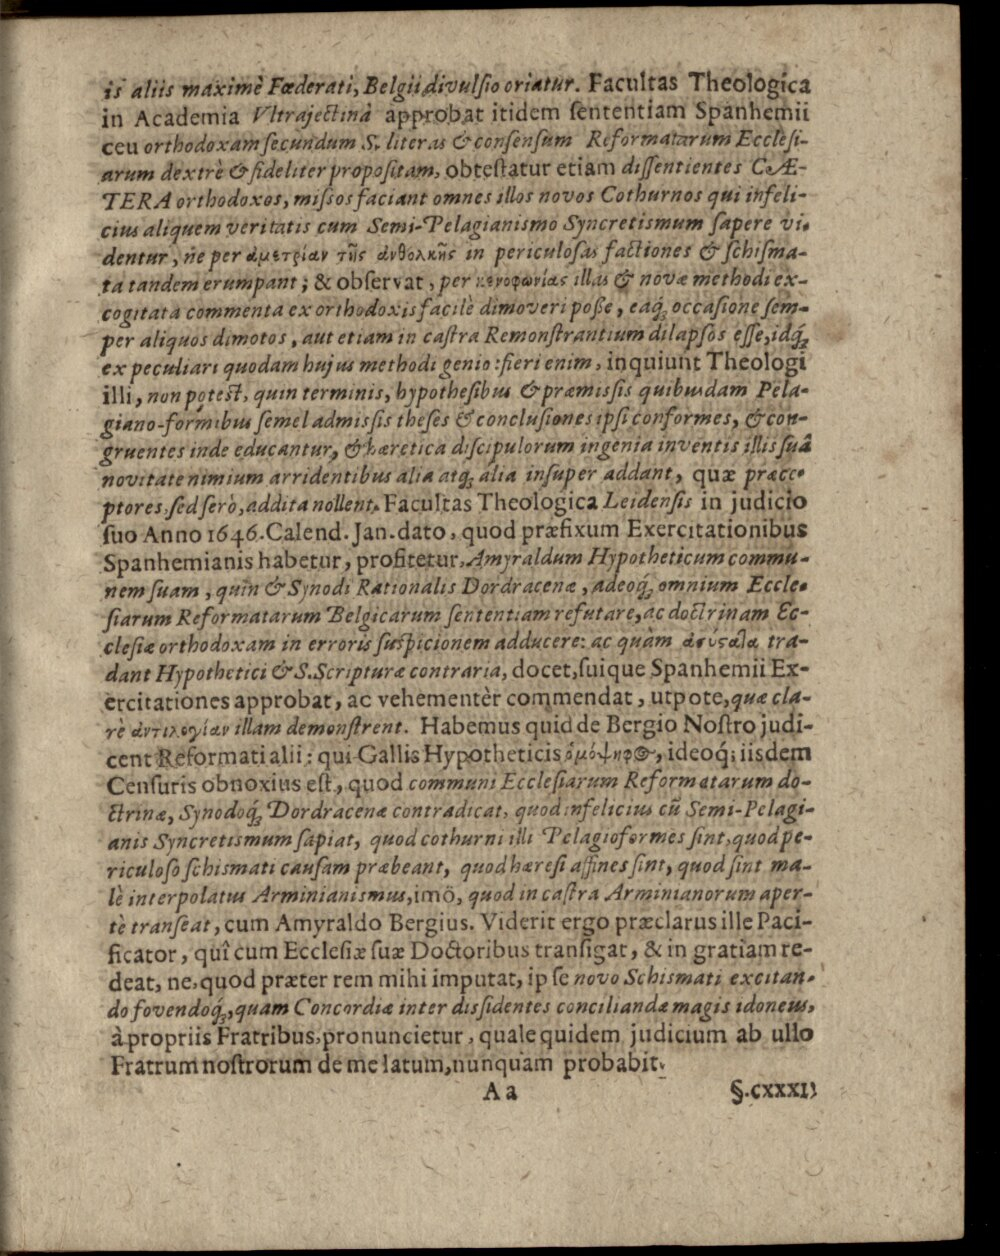 is aliis maximè Fœderati, Belgii divulſio oriatur. Facultas Theologica
in Academia Vltrajectinâ approbat itidem ſententiam Spanhemii
ceu orthodoxam ſecundum S. literas & conſenſum Reformatarum Eccleſi-
arum dextrè & fideliter propoſitam, obteſtatur etiam diſſentientes CÆ-
TERA orthodoxos, miſſos faciant omnes illos novos Cothurnos qui infeli-
cius aliquem veritatis cum Semi-Pelagianiſmo Syncretiſmum ſapere vi-
dentur, ne per ἀμετρίαν τῆς ἀνθολκῆς in periculoſas factiones & ſchiſma-
ta tandem erumpant; & obſervat, per κενοφωνίας illas & novæ methodi ex-
cogitata commenta ex orthodoxis facilè dimoveri poſſe, eaq́; occaſione ſem-
per aliquos dimotos, aut etiam in caſtra Remonſtrantium dilapſos eſſe, idq́;
ex peculiari quodam hujus methodi genio: fieri enim, inquiunt Theologi
illi, non poteſt, quin terminis, hypotheſibus & præmiſſis quibusdam Pela-
giano-formibus ſemel admiſſis theſes & concluſiones ipſi conformes, & con-
gruentes inde educantur, & hæretica diſcipulorum ingenia inventis illis ſuâ
novitate nimium arridentibus alia atq́; alia inſuper addant, quæ præce-
ptores, ſed ſerò, addita nollent. Facultas Theologica Leidenſis in judicio
ſuo Anno 1646. Calend. Jan. dato, quod præfixum Exercitationibus
Spanhemianis habetur, profitetur, Amyraldum Hypotheticum commu-
nem ſuam, quin & Synodi Rationalis Dordracenæ, adeoq́; omnium Eccle-
ſiarum Reformatarum Belgicarum ſententiam refutare, ac doctrinam Ec-
cleſiæ orthodoxam in erroris ſuſpicionem adducere: ac quàm ἀσύςατα tra-
dant Hypothetici & S. Scripturæ contraria, docet, ſuique Spanhemii Ex-
ercitationes approbat, ac vehementèr commendat, utpote, quæ cla-
rè ἀντιλογίαν illam demonſtrent. Habemus quid de Bergio Noſtro judi-
cent Reformati alii: qui Gallis Hypotheticis ὁμόψηφος, ideoq́; iisdem
Cenſuris obnoxius eſt, quod communi Eccleſiarum Reformatarum do-
ctrinæ, Synodoq́; Dordracenæ contradicat, quod infelicius cũ Semi-Pelagi-
anis Syncretiſmum ſapiat, quod cothurni illi Pelagioformes ſint, quod pe-
riculoſo ſchismati cauſam præbeant, quod hæreſi affines ſint, quod ſint ma-
lè interpolatus Arminianismus, imò, quod in caſtra Arminianorum aper-
tè tranſeat, cum Amyraldo Bergius. Viderit ergo præclarus ille Paci-
ficator, quî cum Eccleſiæ ſuæ Doctoribus tranſigat, & in gratiam re-
deat, ne, quod præter rem mihi imputat, ipſe novo Schismati excitan-
do fovendoq́;, quam Concordiæ inter diſſidentes conciliandæ magis idoneus,
à propriis Fratribus, pronuncietur, quale quidem judicium ab ullo
Fratrum noſtrorum de me latum, nunquam probabit.
A a §. CXXXI